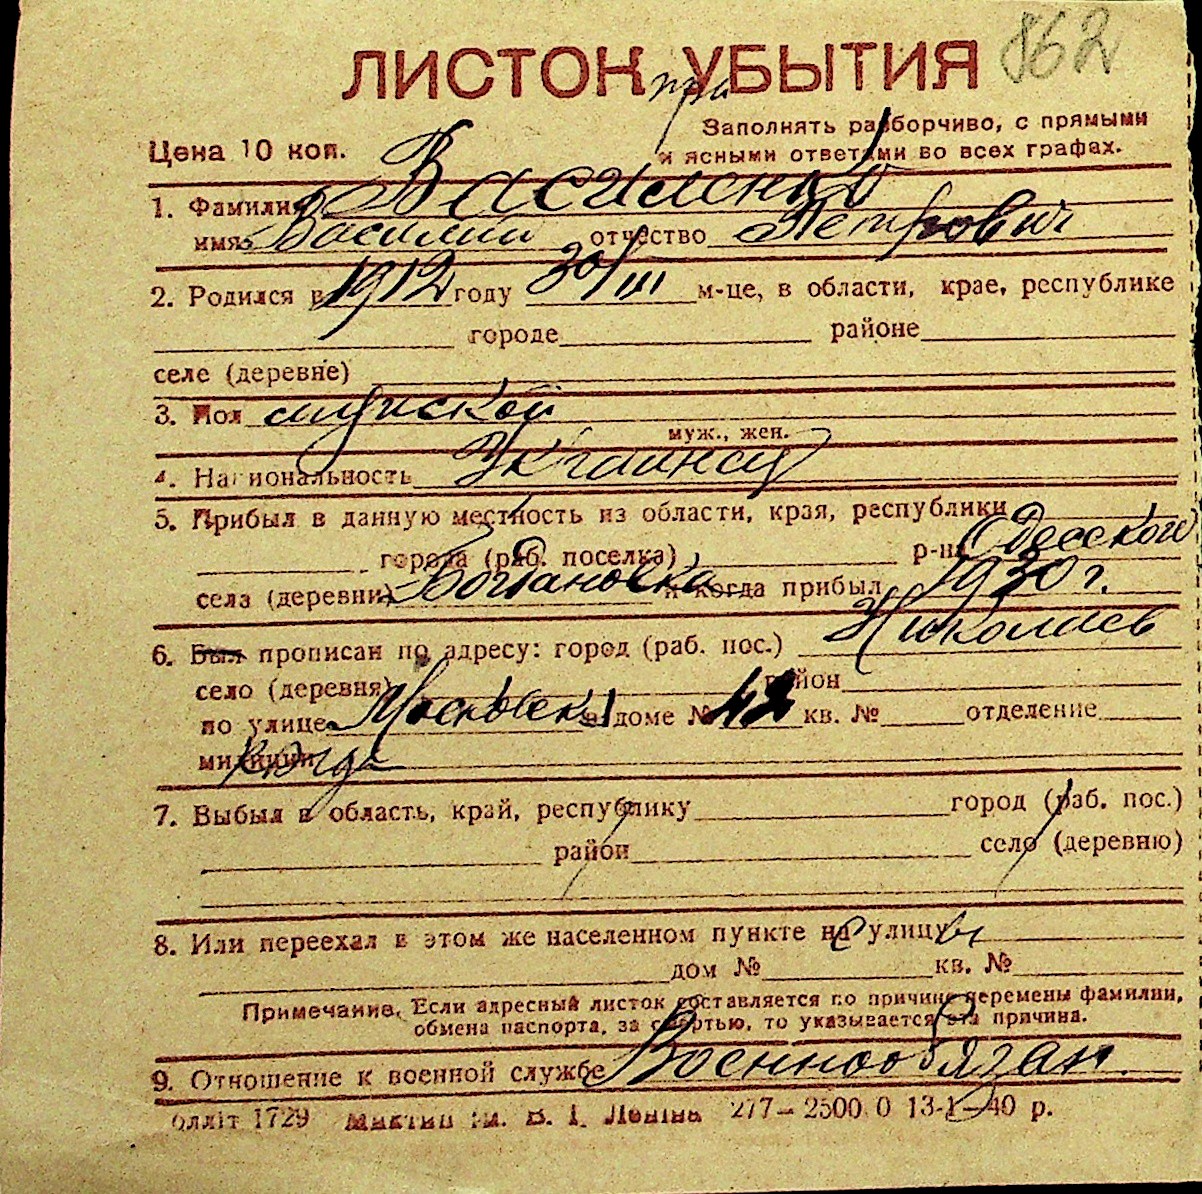 862
ЛИСТОК УБЫТИЯ
при
Заполнять разборчиво, с прямыми
Цена 10 коп. и ясными ответами во всех графах.
1. Фамилия Василенко
имя Василий отчество Петрович
2. Родился в 1912 году 30/III м-це, в области, крае, республике
городе районе
селе (деревне)
3. Пол мужской
муж., жен.
4. Национальность Украинец
5. Прибыл в данную местность из области, края, республики
города (раб. поселка) р-на Одесской
села (деревни) Богдановка и когда прибыл 1930 г.
6. Был прописан по адресу: город (раб. пос.) Николаев
село (деревня) район
по улице Московск в доме № 42 кв. № отделение
милиции
7. Выбыл в область, край, республику город (раб. пос.)
район село (деревню)
8. Или переехал в этом же населенном пункте на улицу
дом № кв. №
Примечание. Если адресный листок составляется по причине перемены фамилии,
обмена паспорта, за смертью, то указывается эта причина.
9. Отношение к военной службе Военнообязан.
олліт 1729 им. В. І. Леніна 277—2500.0 13-І—40 р.